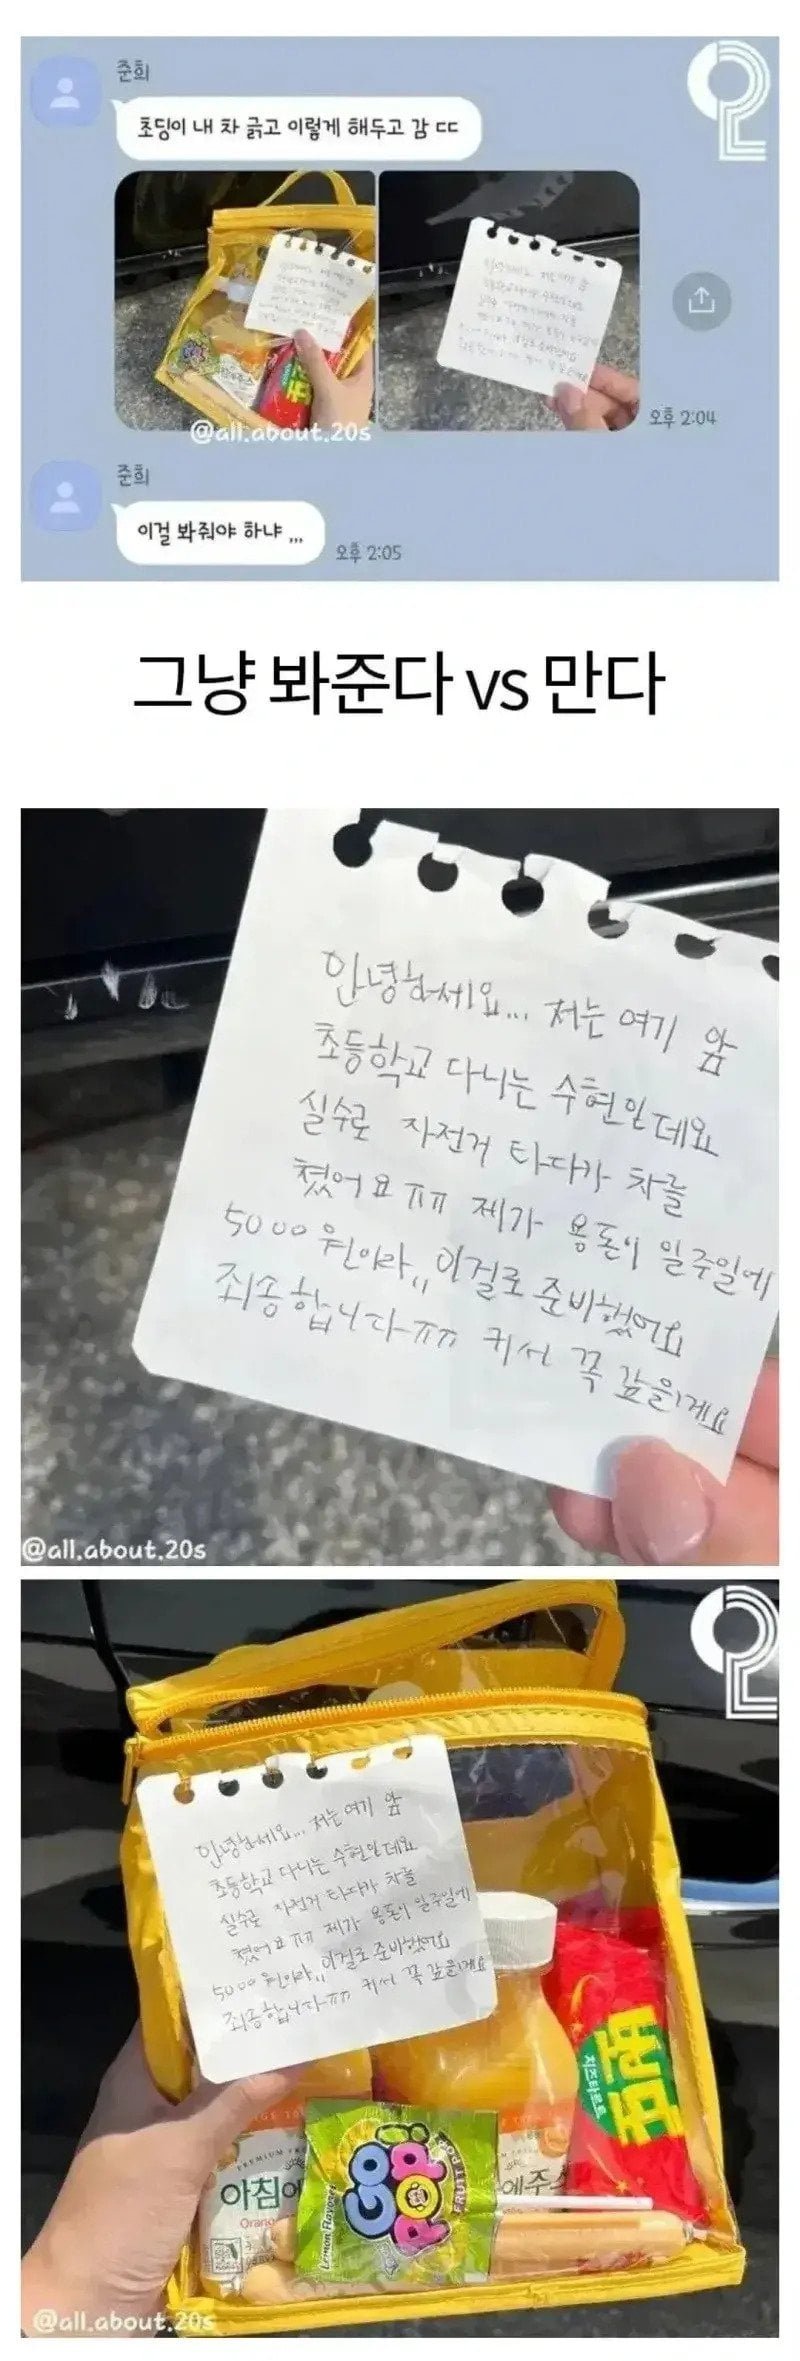 준희
초딩이 내 차 긁고 이렇게 해두고 감 ㄷㄷ
@all.about.20s
오후 2:04
준희
이걸 봐줘야 하냐 ,,,
오후 2:05
그냥 봐준다 vs 만다
안녕하세요... 저는 여기 앞
초등학교 다니는 수현인데요
실수로 자전거 타다가 차를
쳤어요ㅠㅠ 제가 용돈이 일주일에
5000원이라,, 이걸로 준비했어요
죄송합니다ㅠㅠ 커서 꼭 갚을게요
@all.about.20s
안녕하세요... 저는 여기 앞
초등학교 다니는 수현인데요
실수로 자전거 타다가 차를
쳤어요ㅠㅠ 제가 용돈이 일주일에
5000원이라,, 이걸로 준비했어요
죄송합니다ㅠㅠ 커서 꼭 갚을게요
치즈타르트
PREMIUM
아침에
Orang
에주스
GO
POP
Lemon Flavored
@all.about.20s